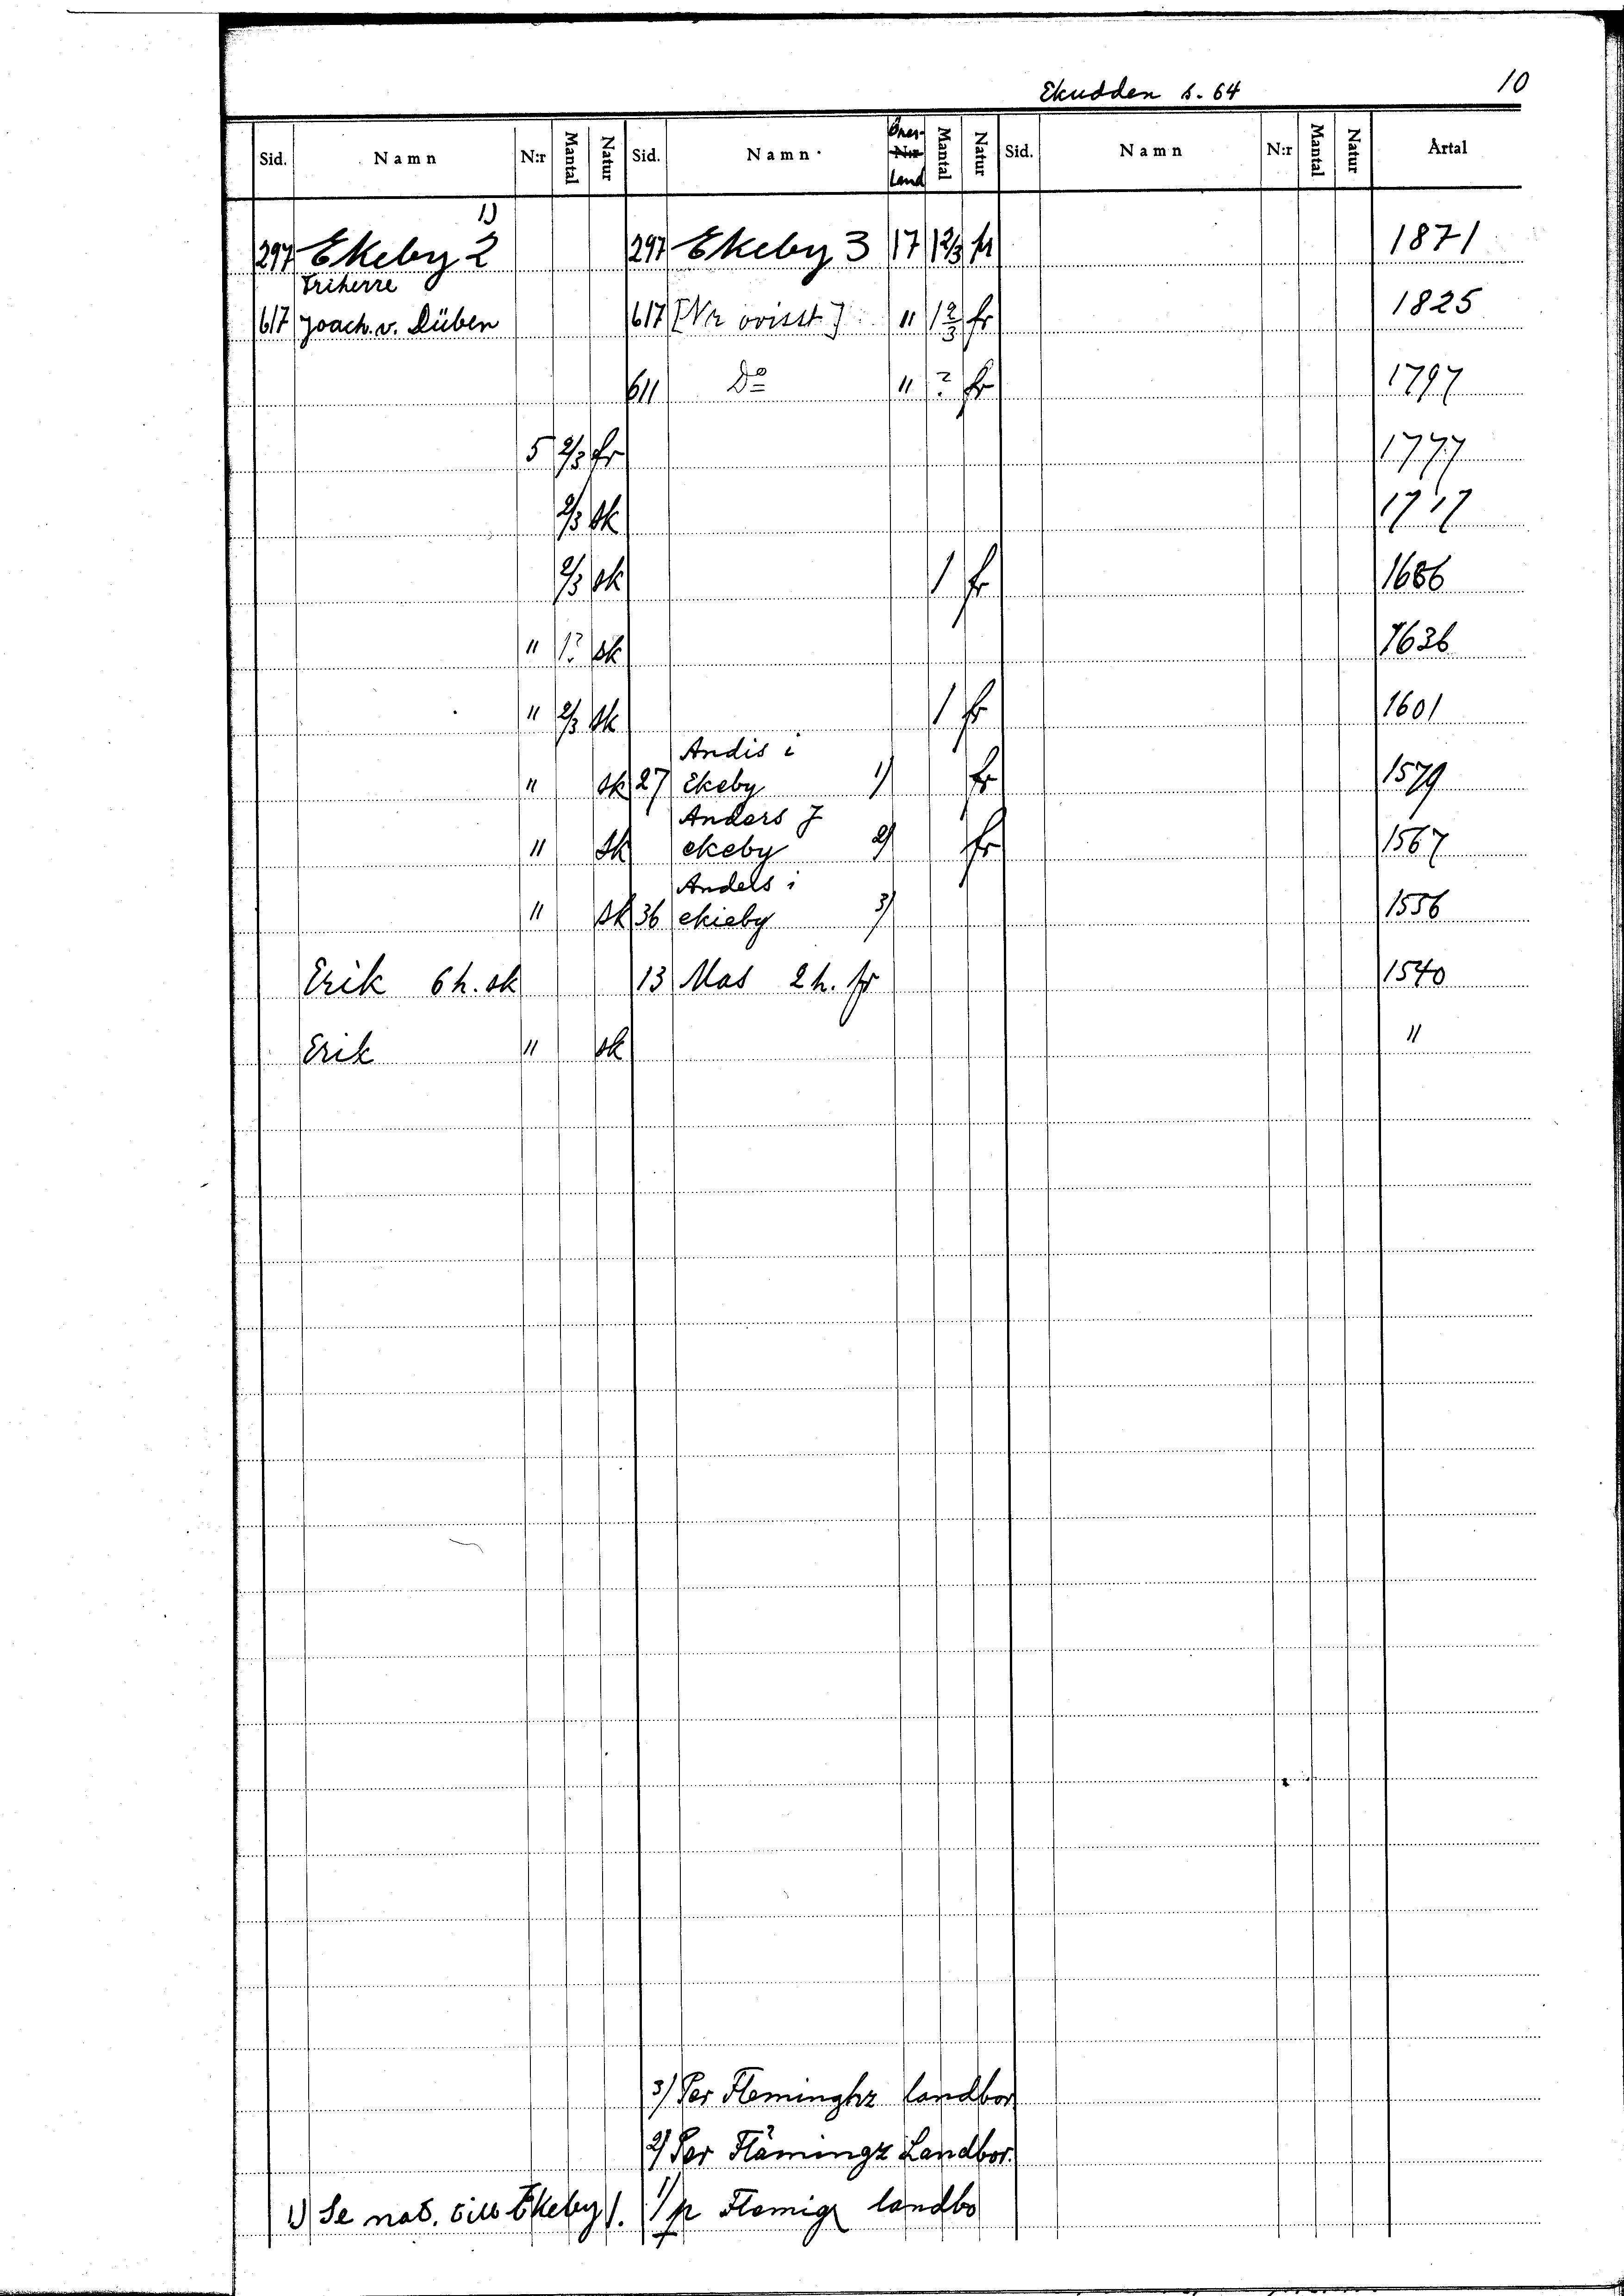 Ekudden s. 64 10
Sid. Namn N:r Mantal Natur Sid. Namn Öres- N:r land Mantal Natur Sid. Namn N:r Mantal Natur Årtal
297 Ekeby 2 1) 297 Ekeby 3 17 1 2/3 fr 1871
Friherre
617 Joach. v. Düben 617 [Nr ovisst] " 1 2/3 fr 1825
611 Do " ? fr 1797
5 2/3 fr 1777
2/3 sk 1717
2/3 sk 1 fr 1686
" 1? sk 1636
" 2/3 sk 1 fr 1601
Andis i
" sk 27 Ekeby 1) fr 1579
Anders J
" sk ekeby 2) fr 1567
Andels i
" sk 36 ekieby 3) 1556
Erik 6 h. sk 13 Mas 2 h. fr 1540
Erik " sk "
3) Per Fleminghz landbor
2) Per Flämingz Landbor.
1) Se not. till Ekeby 1. 1) p Flemigz landbo